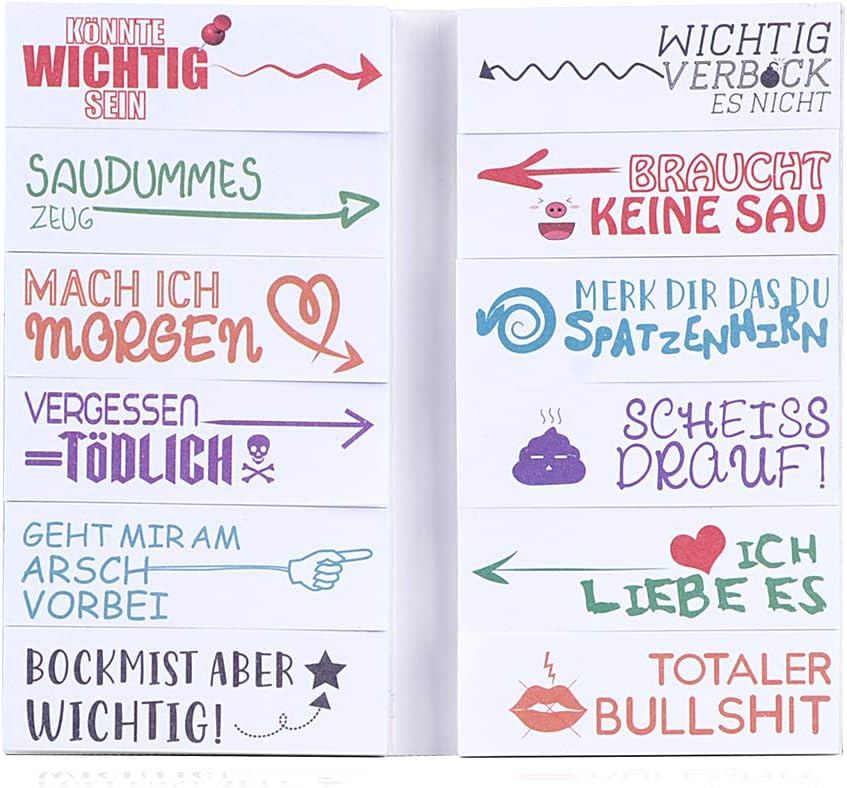 KÖNNTE
WICHTIG
SEIN
SAUDUMMES
ZEUG
MACH ICH
MORGEN
VERGESSEN
=TÖDLICH
GEHT MIR AM
ARSCH
VORBEI
BOCKMIST ABER
WICHTIG!
WICHTIG
VERBOCK
ES NICHT
BRAUCHT
KEINE SAU
MERK DIR DAS DU
SPATZENHIRN
SCHEISS
DRAUF!
ICH
LIEBE ES
TOTALER
BULLSHIT